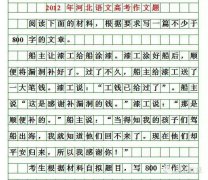 2012 年河北语文高考作文题
阅读下面的材料，根据要求写一篇不少于
800 字的文章。
船主请漆工给船涂漆。漆工涂好船后，顺
便将漏洞补好了。过了不久，船主给漆工送了
一大笔钱。漆工说：“工钱已给过了”。船主
说“这是感谢补漏洞的钱。”漆工说：“那是
顺便补的。”船主说：“当得知我的孩子们驾
船出海，我就知道他们回不来了。现在他们却
平安归来，所以我感谢你！”
考生根据材料自拟题目，写 800 字作文。